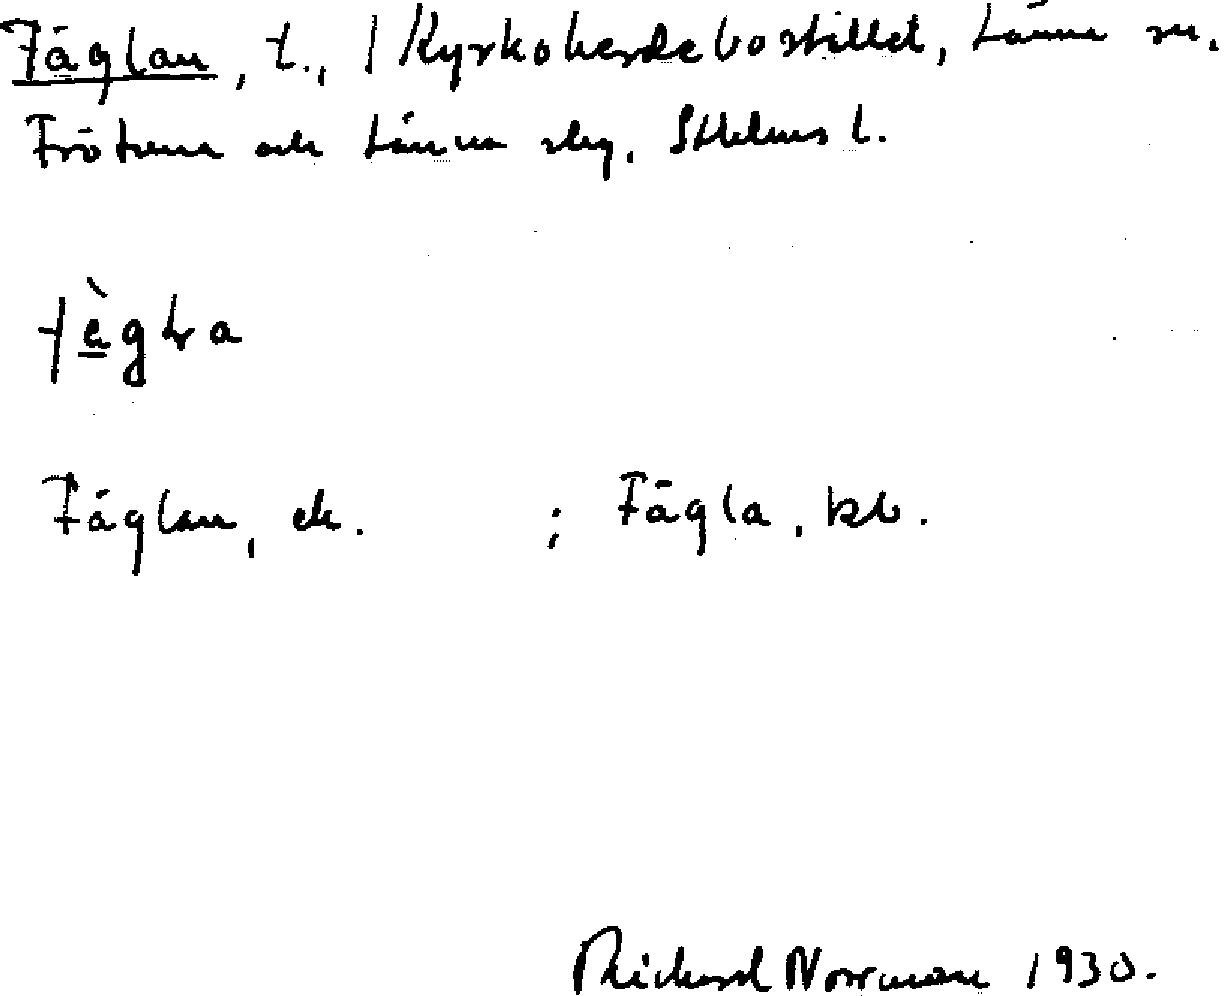 Fäglan, t., / Kyrkoherdebostället, Länna sn.
Frötuna och Länna skg, Sthlms l.
fègla
Fäglan, ek. ; Fägla, kb.
Rickard Norrman 1930.